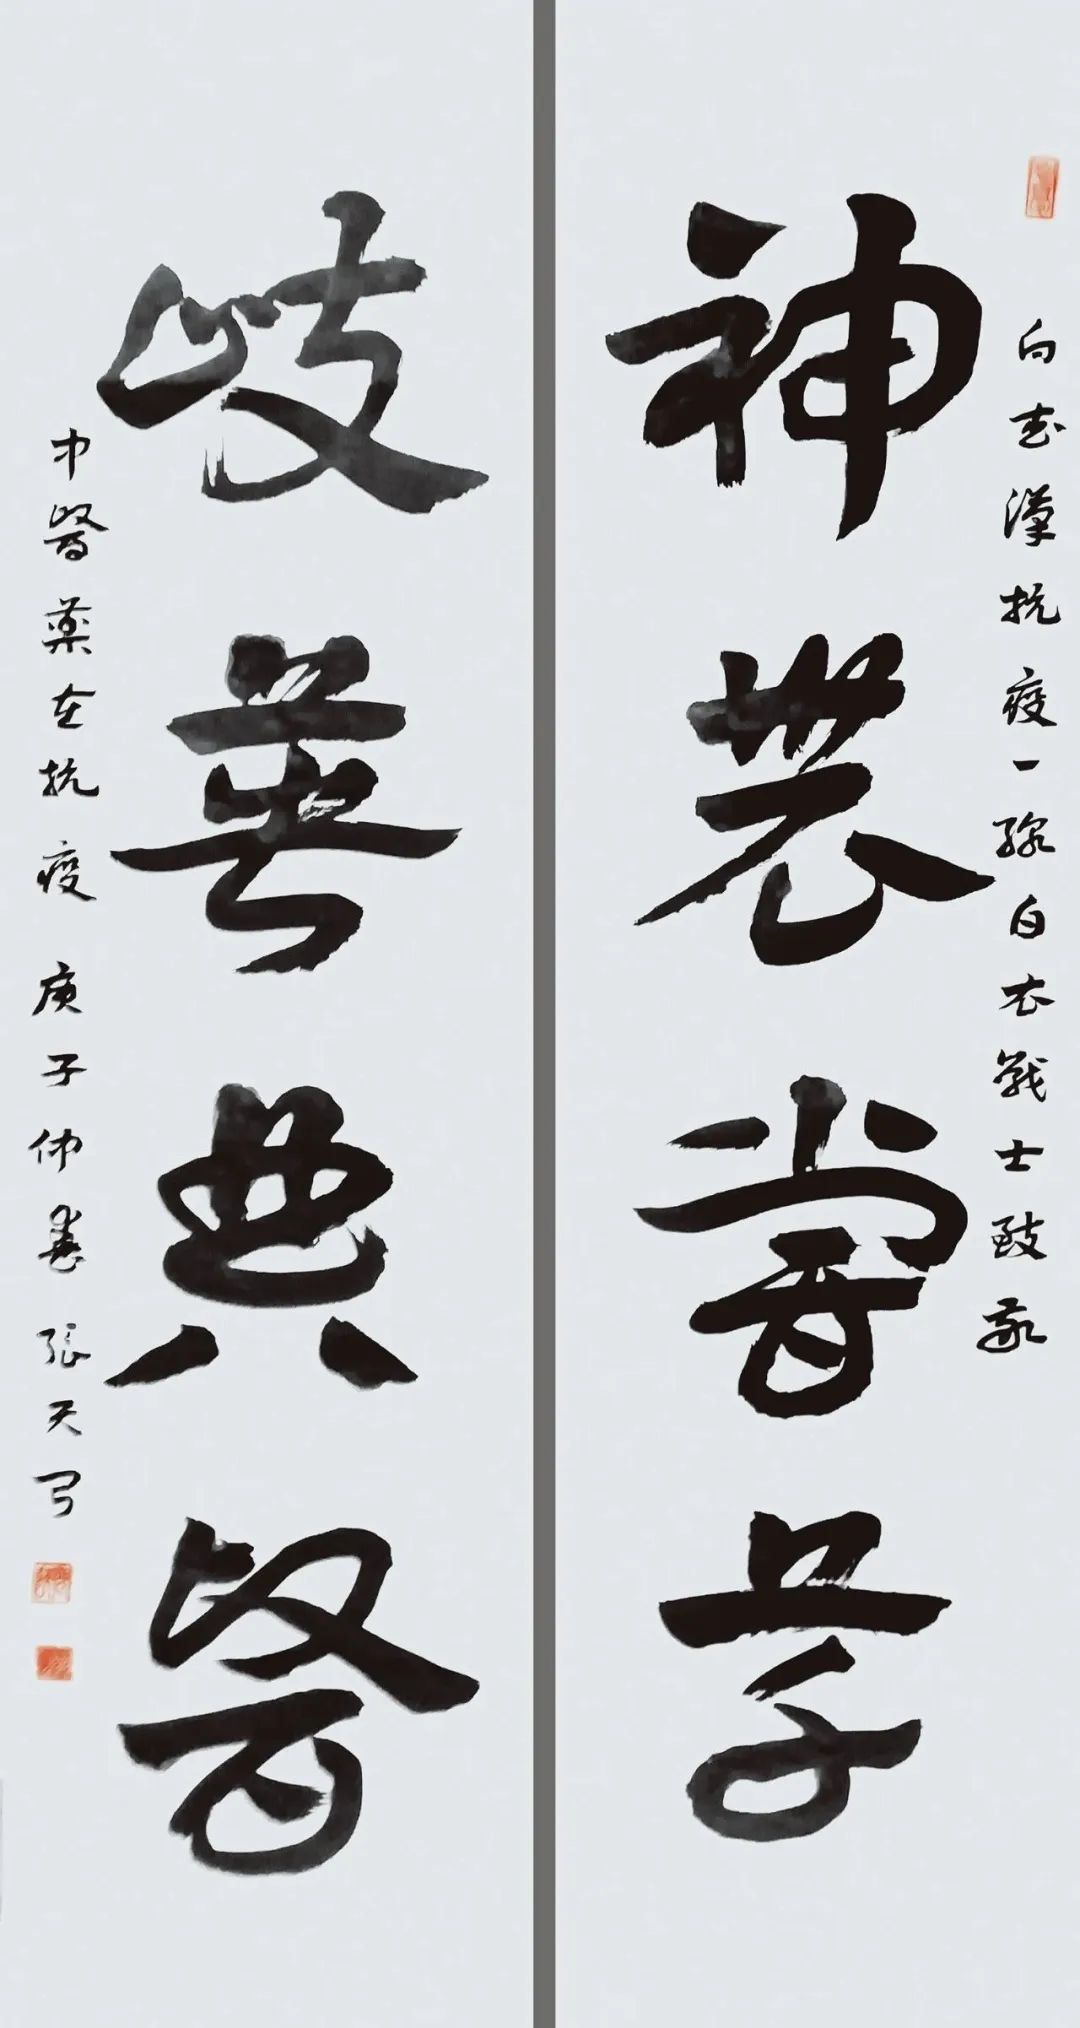 向武漢抗疫一線白衣戰士致敬
神農嘗草
岐黃典醫
中醫藥在抗疫 庚子仲春 張天弓